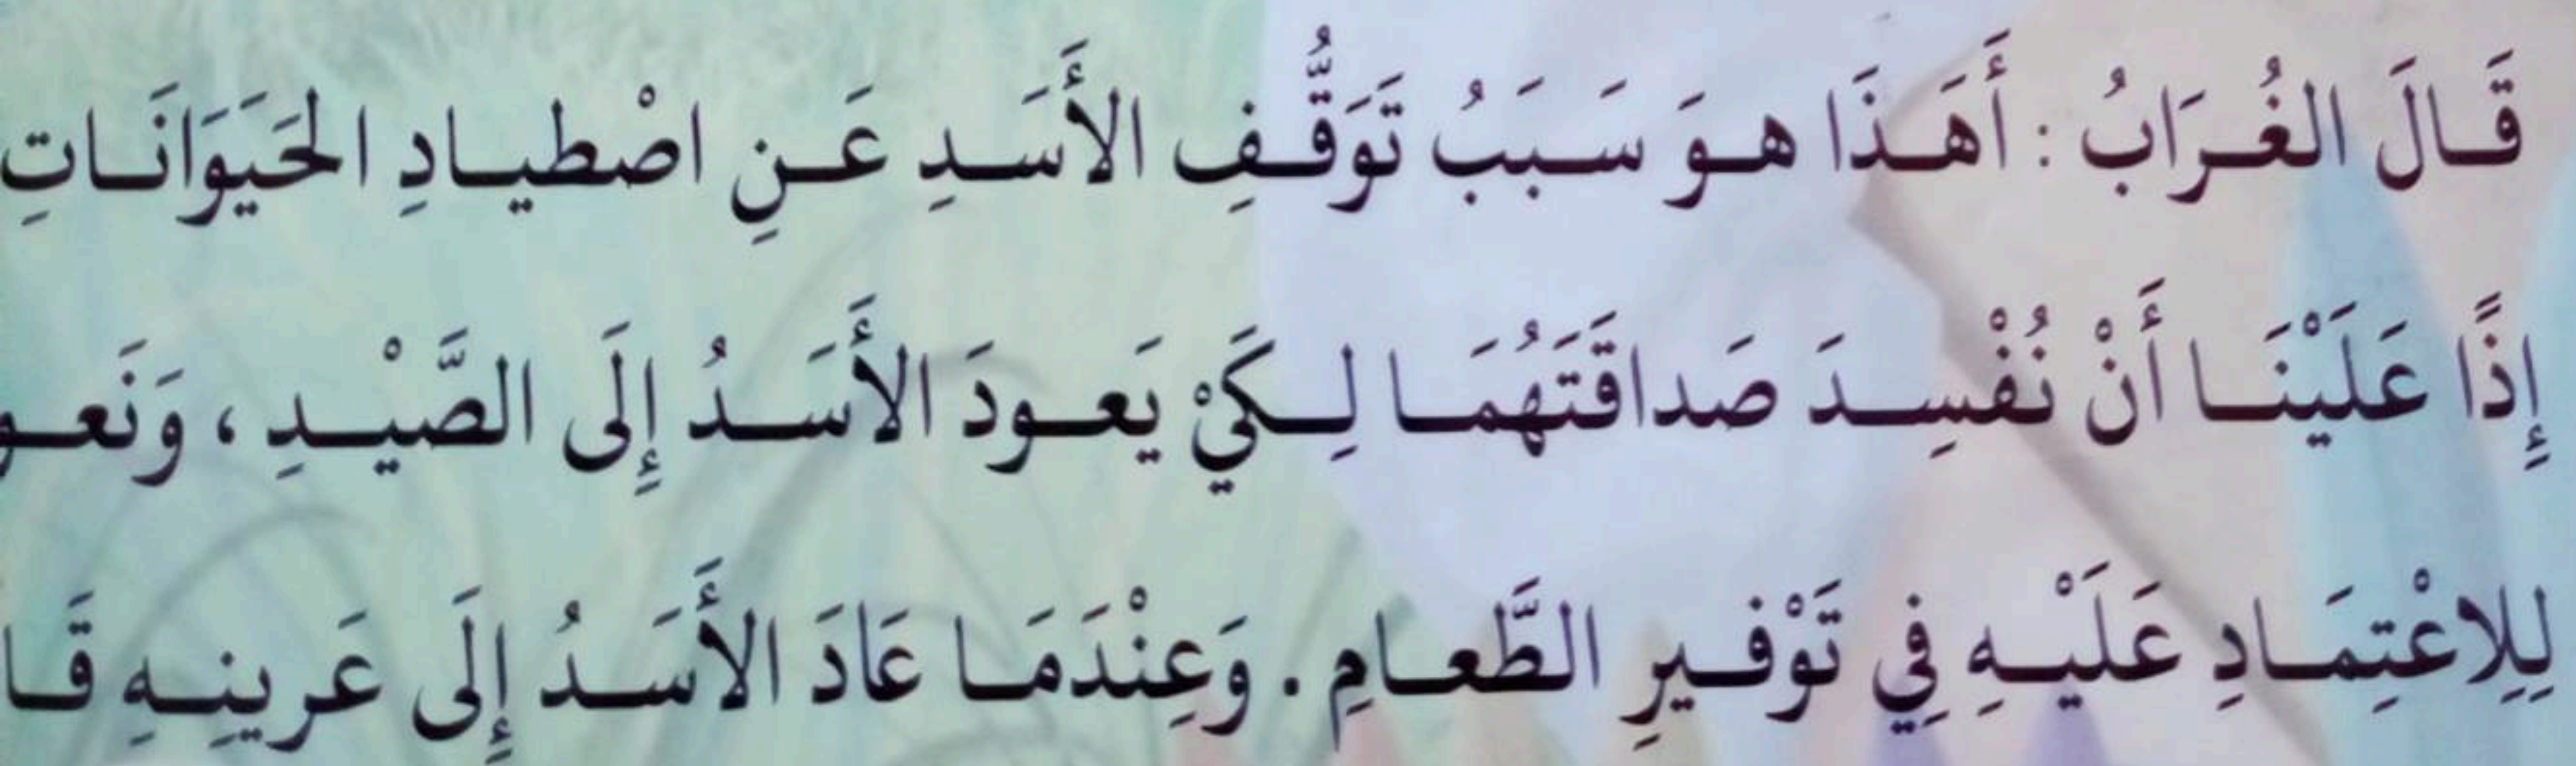 قَالَ الغُرَابُ : أَهَذَا هوَ سَبَبُ تَوَقُّفِ الأَسَدِ عَنِ اصْطيادِ الحَيَوَانَاتِ
إِذًا عَلَيْنَا أَنْ نُفْسِدَ صَداقَتَهُمَا لِكَيْ يَعودَ الأَسَدُ إِلَى الصَّيْدِ ، وَنَعو
لِلِاعْتِمَادِ عَلَيْهِ فِي تَوْفيرِ الطَّعامِ . وَعِنْدَمَا عَادَ الأَسَدُ إِلَى عَرينِهِ قَا